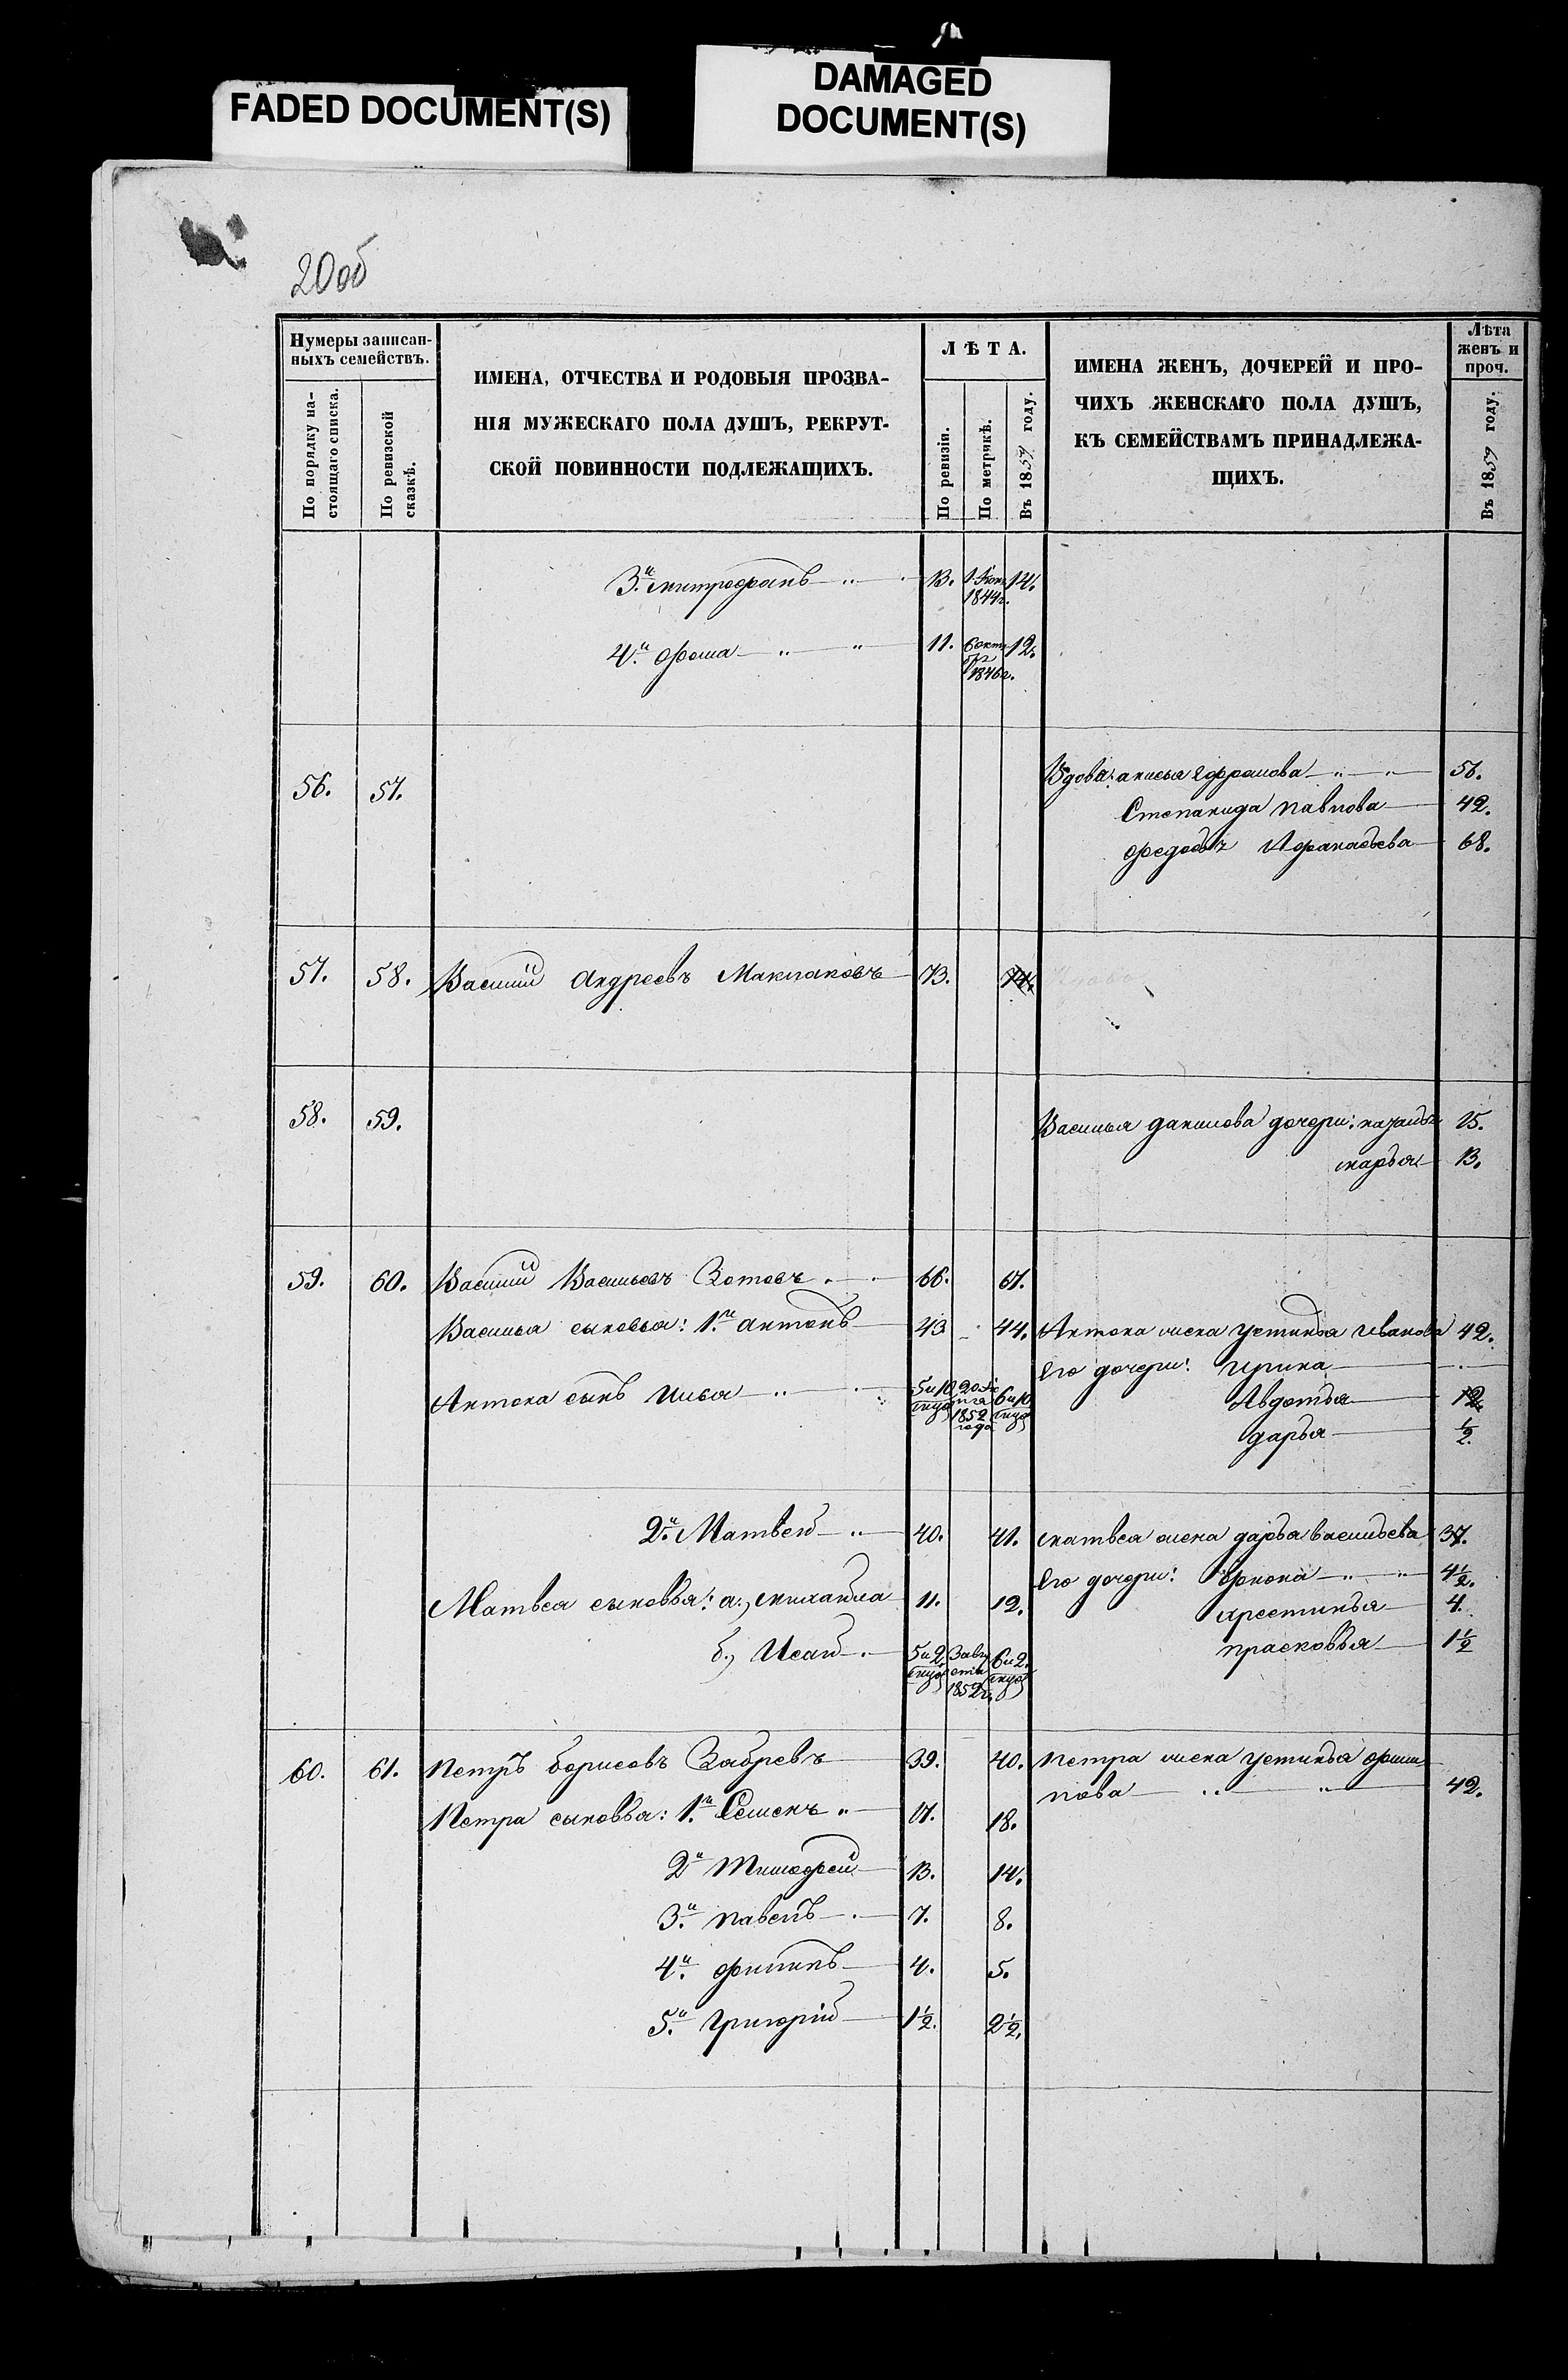 FADED DOCUMENT(S)
DAMAGED
DOCUMENT(S)
20 об
Нумеры записан-
ныхъ семействъ.
По порядку на-
стоящаго списка.
По ревизской
сказкѣ.
ИМЕНА, ОТЧЕСТВА И РОДОВЫЯ ПРОЗВА-
НІЯ МУЖЕСКАГО ПОЛА ДУШЪ, РЕКРУТ-
СКОЙ ПОВИННОСТИ ПОДЛЕЖАЩИХЪ.
ЛѢТА.
По ревизіи.
По метрикѣ.
Въ 1859 году.
ИМЕНА ЖЕНЪ, ДОЧЕРЕЙ И ПРО-
ЧИХЪ ЖЕНСКАГО ПОЛА ДУШЪ,
КЪ СЕМЕЙСТВАМЪ ПРИНАДЛЕЖА-
ЩИХЪ.
Лѣта
женъ и
проч.
Въ 1859 году.
3.й митрофанъ 13. 1844г. 14.
4.й фома 11. 6 октя
бря 12.
1846г.
56. 57. Вдова: анисья ефремова 56.
Степанида павлова 42.
федосья Афанасьева 68.
57. 58. Василій андреевъ Маклаковъ 73. 74.
58. 59. Василья данилова дочери: 15.
марья 13.
59. 60. Василій Васильевъ Зотовъ 66. 67.
Василья сыновья: 1.й антонъ 43 44. Антона жена устинья иванова 42.
Его дочери: ирина
Антона сынъ илья 5 и 10 20 6 и 10 Авдотья 12.
1852
года
дарья ½.
2.й Матвей 40. 41. матвея жена дарья васильева 37.
Его дочери: 4½.
Матвея сыновья: а., михайла 11. 12. хрестинья 4.
б., Исай 5 и 2. 3 авгу
ста 6 и 2. прасковья 1½
1852г.
60. 61. Петръ борисовъ 39. 40. петра жена устинья фили-
пова 42.
Петра сыновья: 1.й Семенъ 17. 18.
2.й тимофей 13. 14.
3.й павелъ 7. 8.
4.й филипъ 4. 5.
5.й григорій 1½. 2½.